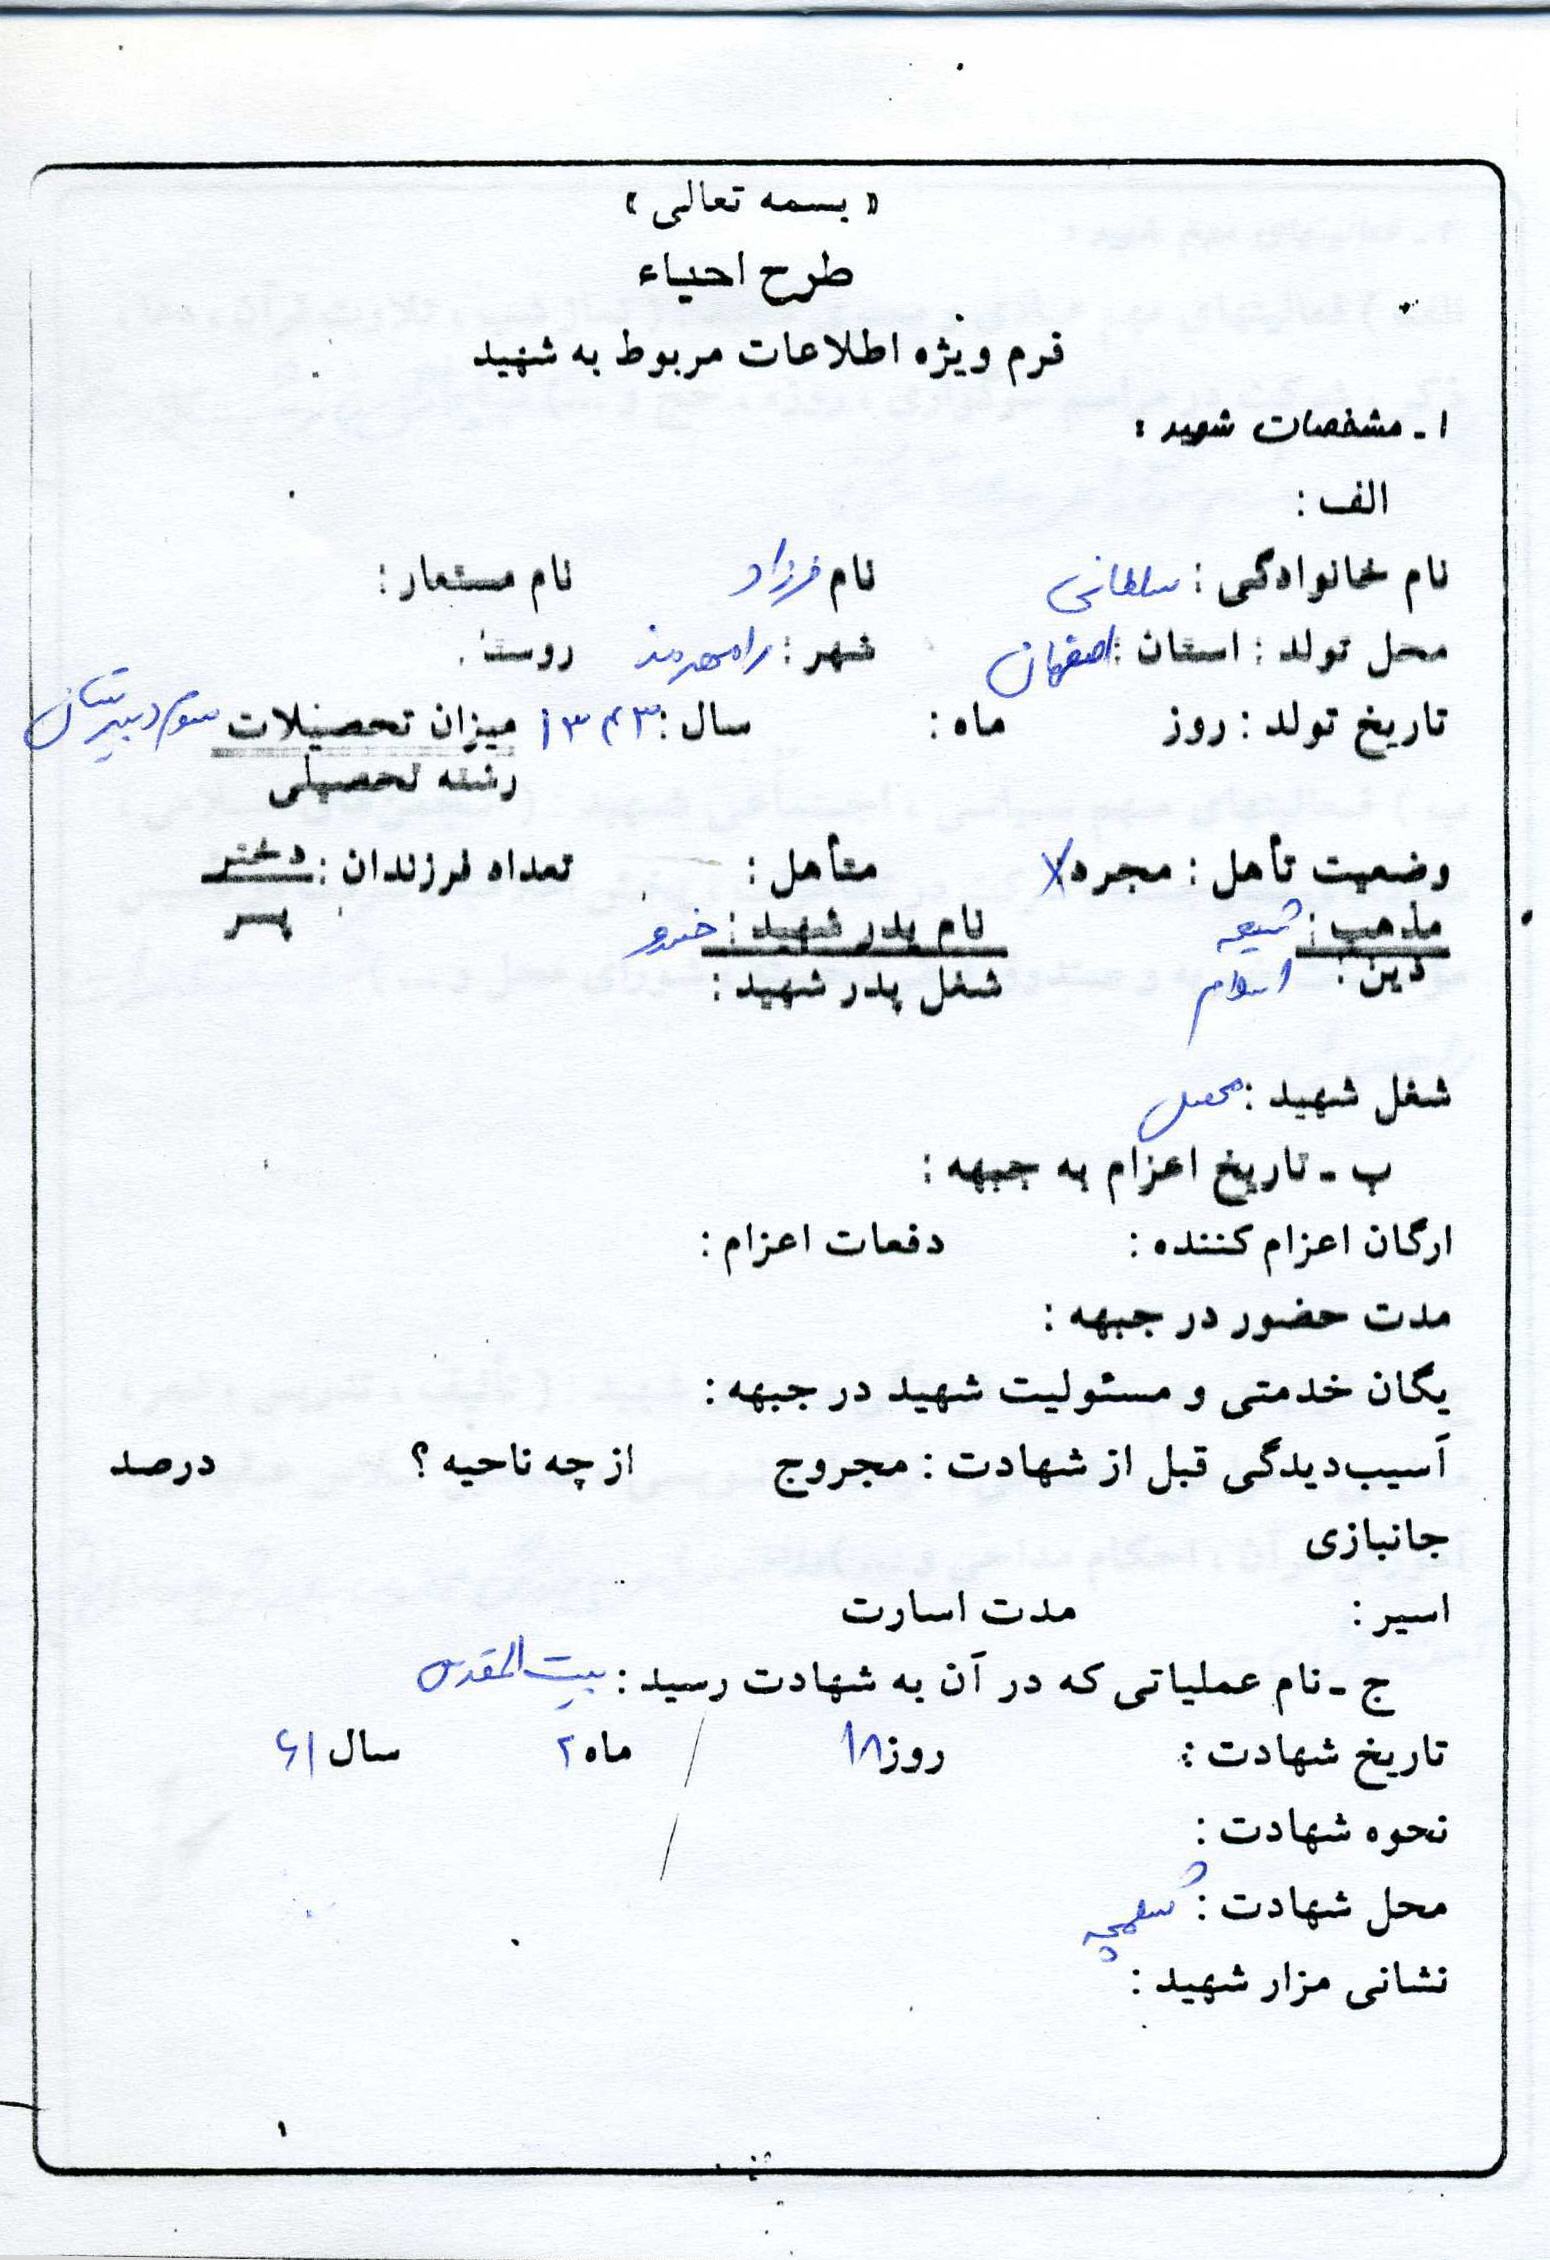 « بسمه تعالی »
طرح احیاء
فرم ویژه اطلاعات مربوط به شهید
۱ ـ مشخصات شهید :
الف :
نام خانوادگی : سلطانی نام فرزاد نام مستعار :
محل تولد : استان : اصفهان شهر : رامهرمز روستا
تاریخ تولد : روز ماه : سال : ۱۳۴۳ میزان تحصیلات سوم دبیرستان
رشته تحصیلی
وضعیت تأهل : مجرد : X متأهل : تعداد فرزندان : دختر
پسر
مذهب : شیعه نام پدر شهید : خسرو
دین : اسلام شغل پدر شهید :
شغل شهید : محصل
ب ـ تاریخ اعزام به جبهه :
ارگان اعزام کننده : دفعات اعزام :
مدت حضور در جبهه :
یگان خدمتی و مسئولیت شهید در جبهه :
آسیب‌دیدگی قبل از شهادت : مجروح از چه ناحیه ؟ درصد
جانبازی
اسیر : مدت اسارت
ج ـ نام عملیاتی که در آن به شهادت رسید : بیت المقدس
تاریخ شهادت : روز ۱۸ ماه ۲ سال ۶۱
نحوه شهادت :
محل شهادت : شلمچه
نشانی مزار شهید :
۱